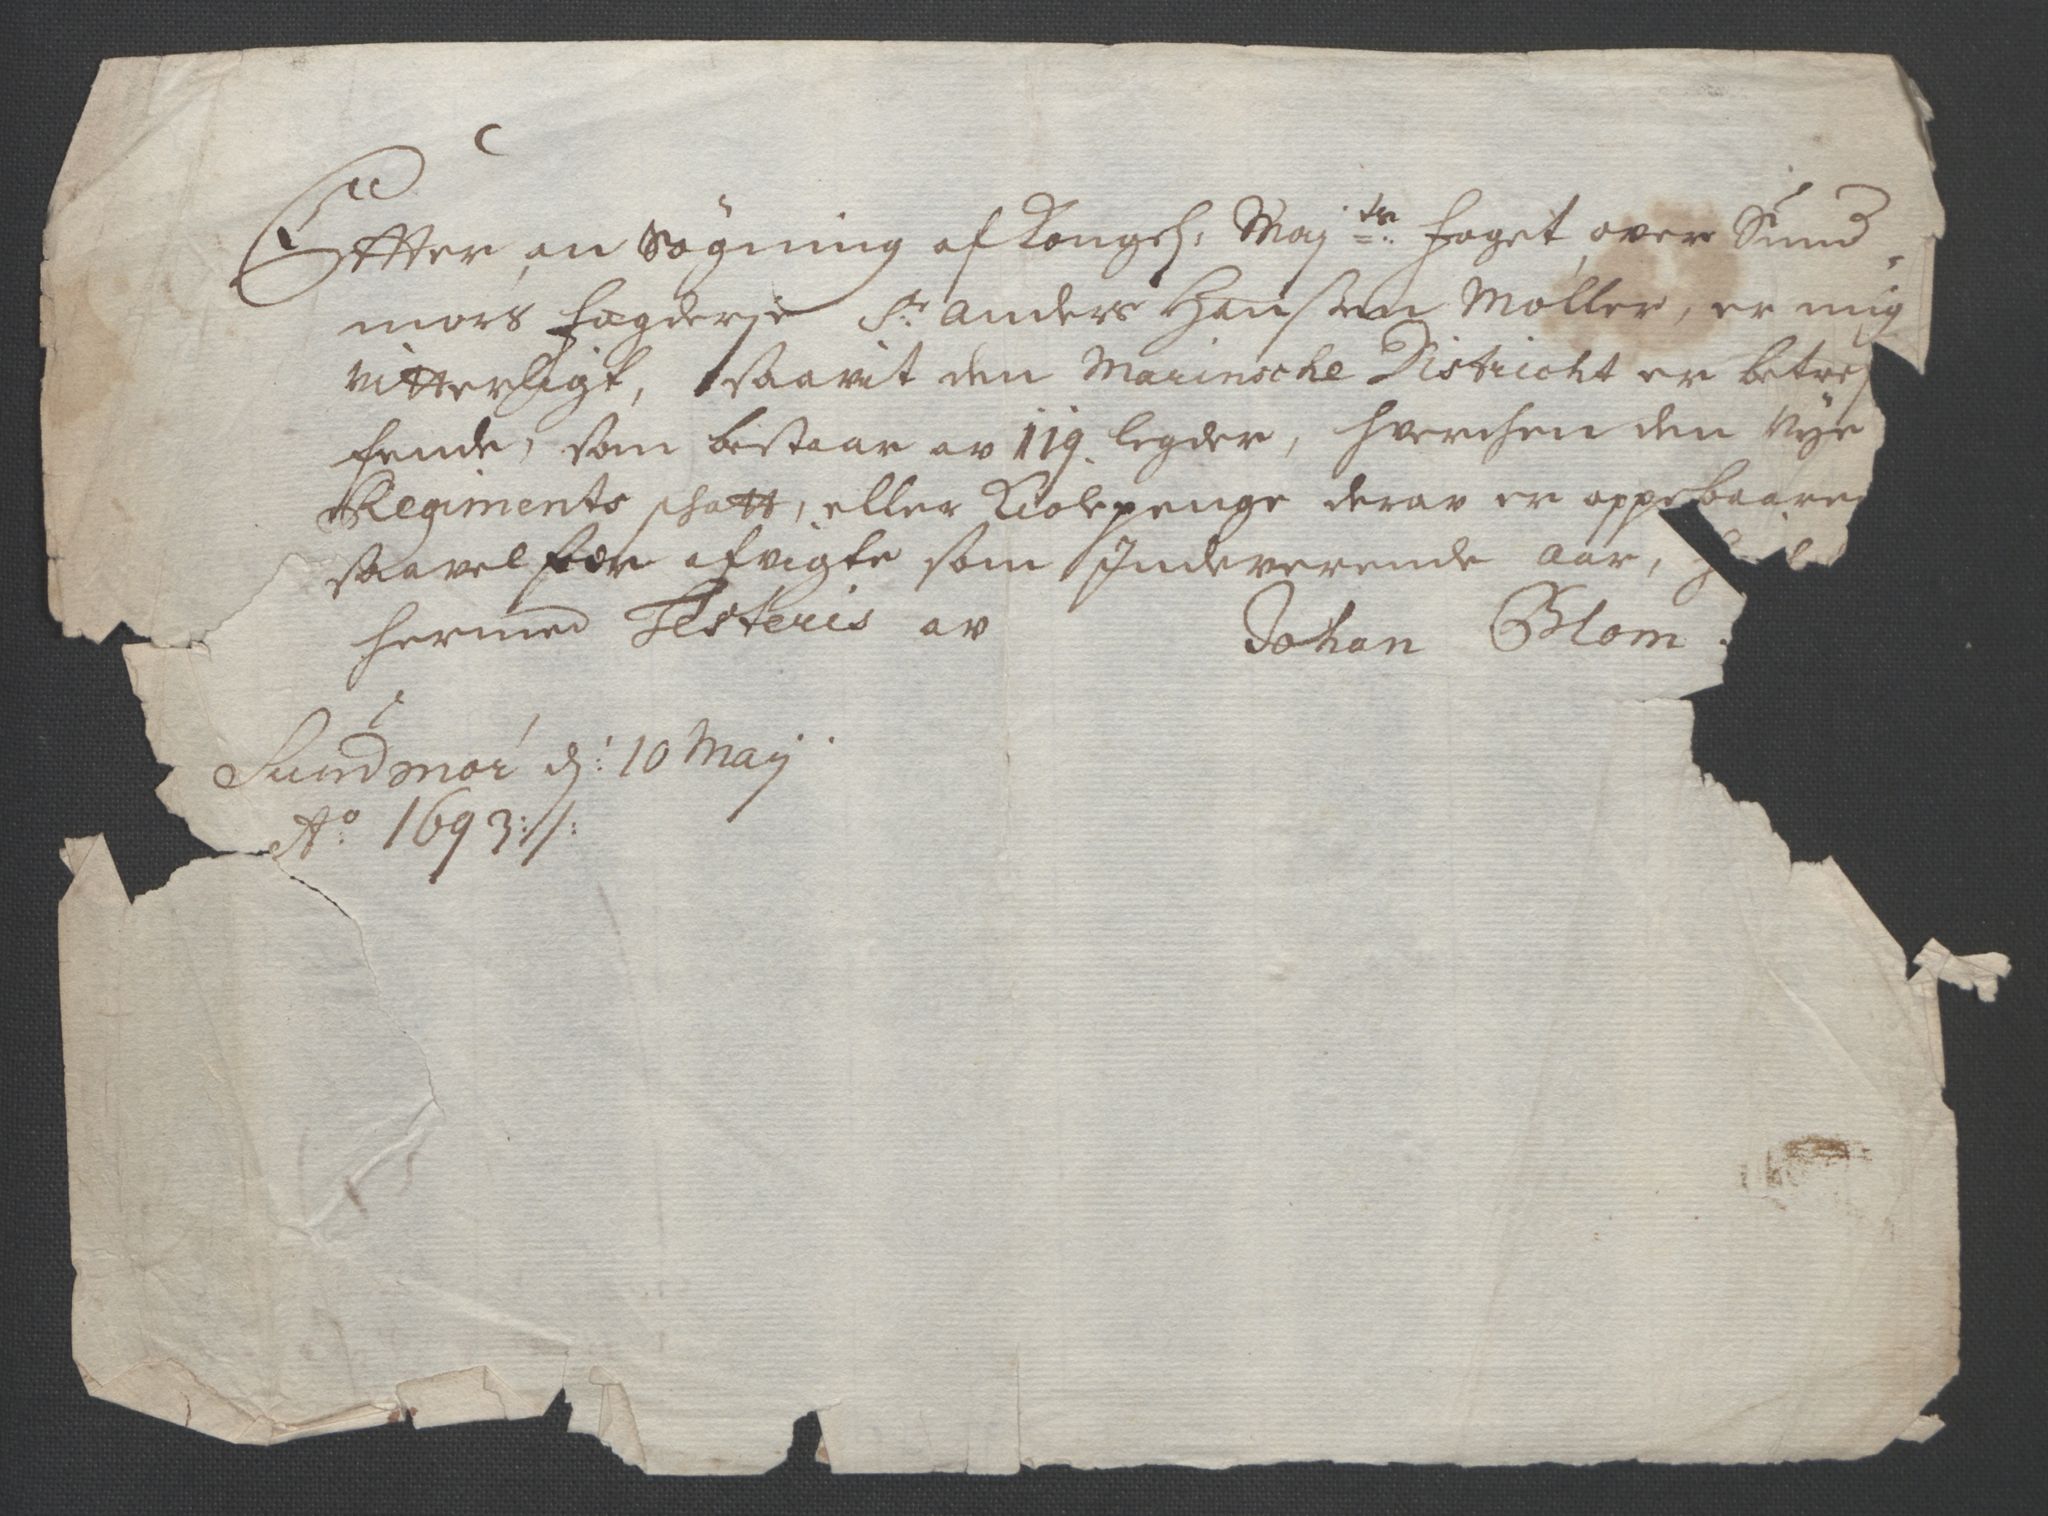 Effter an Søgning af Kongel: Maj:ts: Foget over Sund
mørs Fogderje Sr: Anders Hanssen Møller, er mig
vitterligt, saavit den Marinsche District er betref
fende, som bestaar av 119. legder, hverchen den Nye
Regiments schatt, eller Kiolepenge derav er oppebaaren
saavel for afvigte som Indeverende Aar,
hermed Testeris av Johan Blom.
Sundmør d: 10 Maij
Ao: 1693:/: